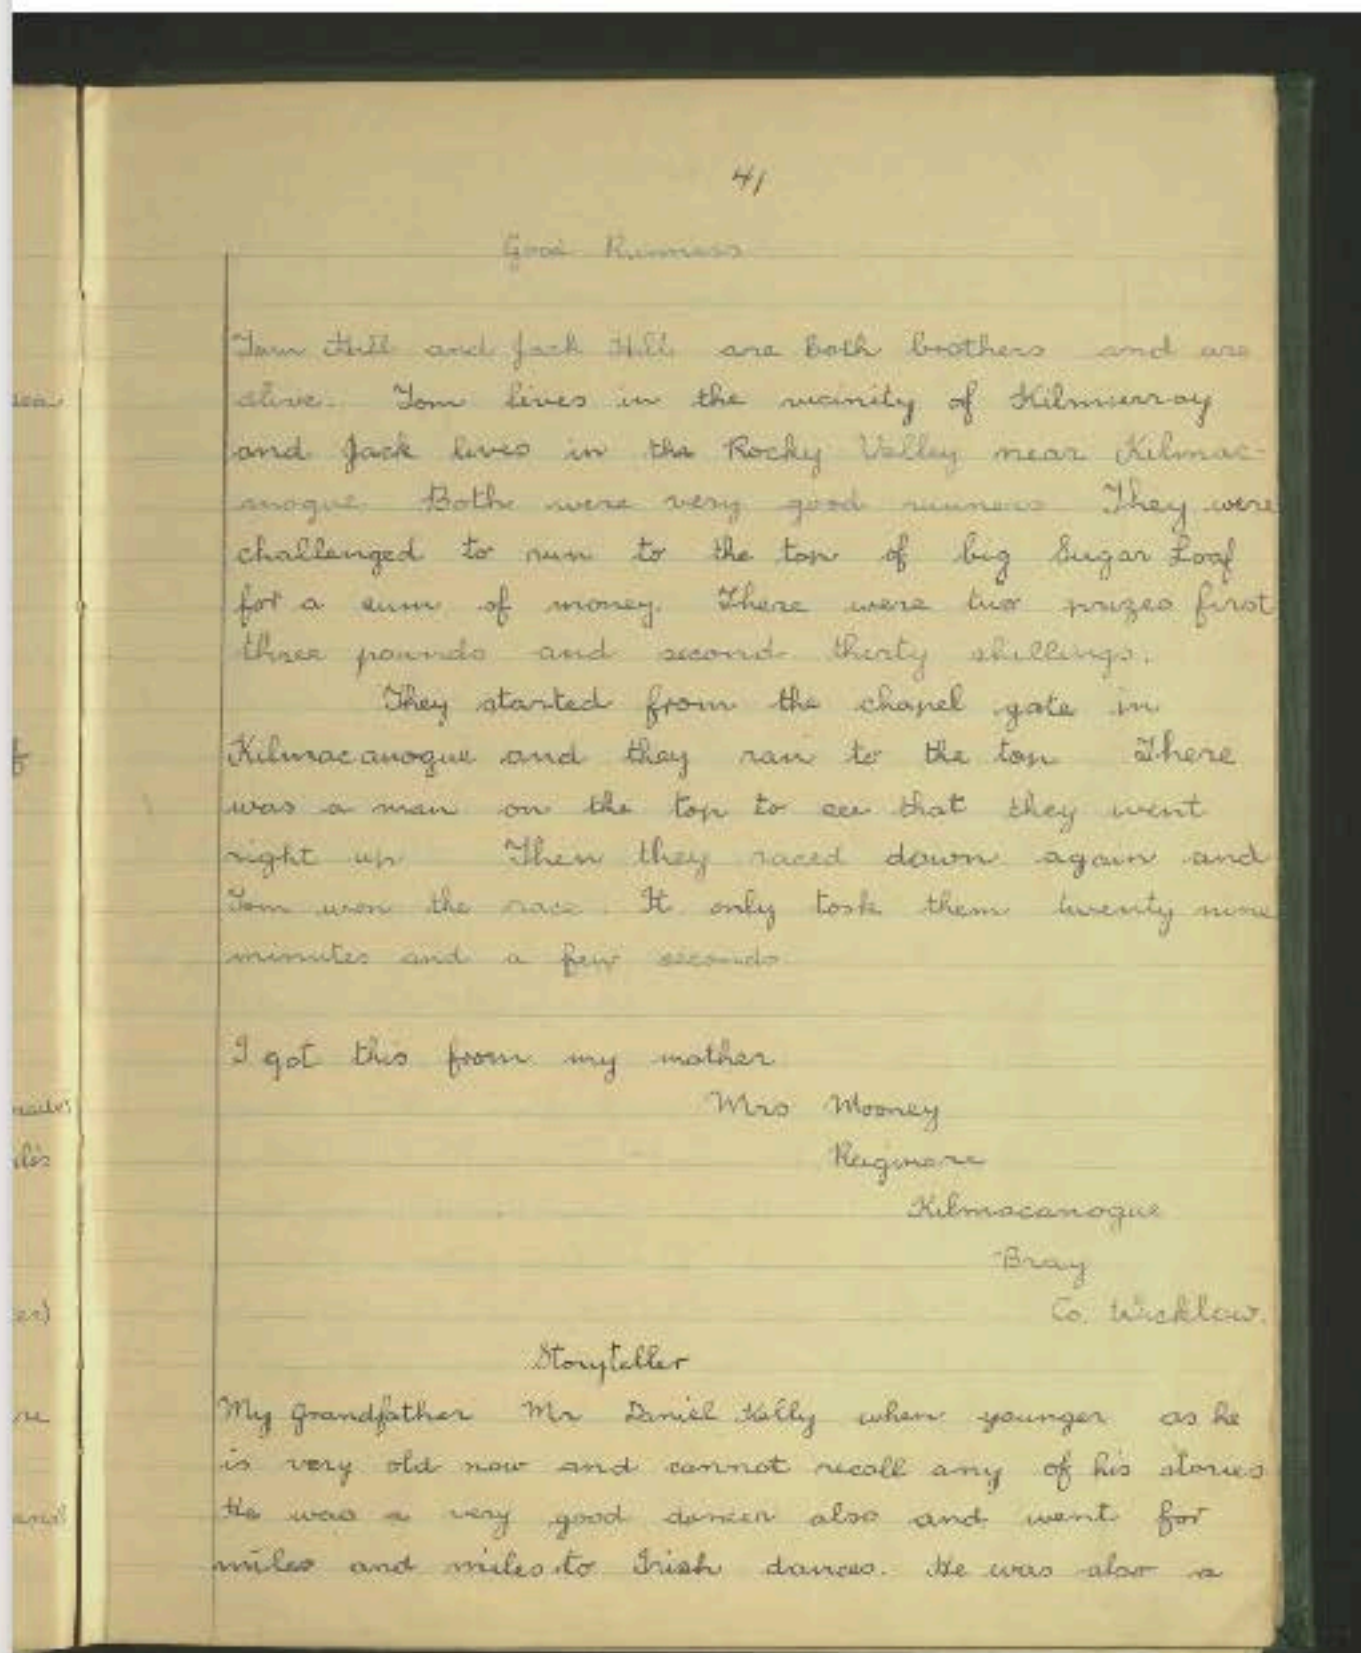 41
Good Runners
Tom Hill and Jack Hill are both brothers and are
alive. Tom lives in the vicinity of Kilmurray
and Jack lives in the Rocky Valley near Kilmac-
anogue. Both were very good runners They were
challenged to run to the top of big Sugar Loaf
for a sum of money. There were two prizes first
three pounds and second thirty shillings.
They started from the chapel gate in
Kilmacanogue and they ran to the top There
was a man on the top to see that they went
right up Then they raced down again and
Tom won the race. It only took them twenty nine
minutes and a few seconds
I got this from my mother
Mrs Mooney
Kilmacanogue
Bray
Co. Wicklow.
Storyteller
My Grandfather Mr Daniel Kelly when younger as he
is very old now and cannot recall any of his stories
He was a very good dancer also and went for
miles and miles to Irish dances. He was also a